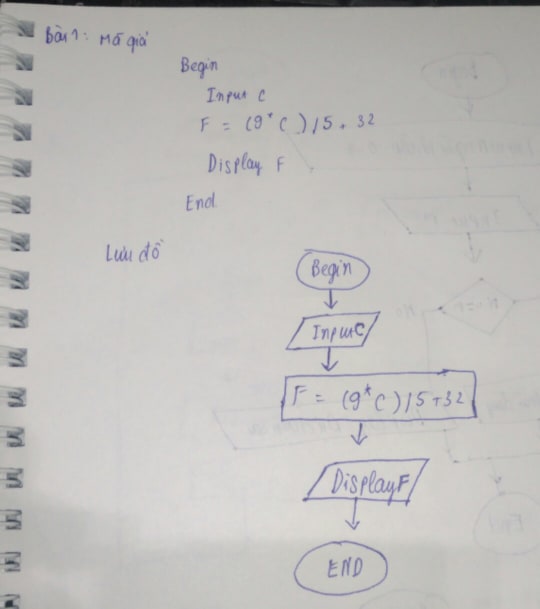 Bài 1: Mã giả
Begin
Input C
F = (9*C)/5 + 32
Display F
End
Lưu đồ
Begin
Input C
F = (9*C)/5+32
Display F
END